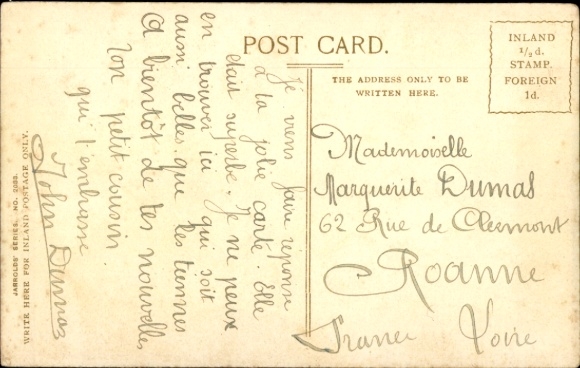 POST CARD.
THE ADDRESS ONLY TO BE
WRITTEN HERE.
INLAND
½ d.
STAMP.
FOREIGN
1d.
JARROLDS' SERIES. NO. 2083.
WRITE HERE FOR INLAND POSTAGE ONLY.
Je viens faire reponse
a ta jolie carte. Elle
etait superbe. Je ne peux
en trouver ici qui soit
aussi belles que les tiennes
A bientôt de tes nouvelles
Ton petit cousin
qui t'embrasse
John Dumas
Mademoiselle
Marguerite Dumas
62 Rue de Clermont
Roanne
France Loire